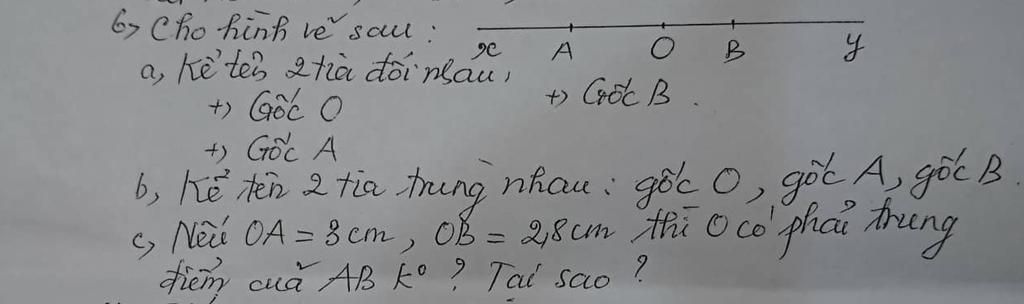 6> Cho hình vẽ sau :
x A O B y
a, Kể tên 2 tia đối nhau,
+> Gốc O +> Gốc B .
+> Gốc A
b, Kể tên 2 tia trùng nhau : gốc O, gốc A, gốc B
c, Nếu OA = 3cm, OB = 2,8cm thì O có phải trung
điểm của AB K° ? Tại sao ?